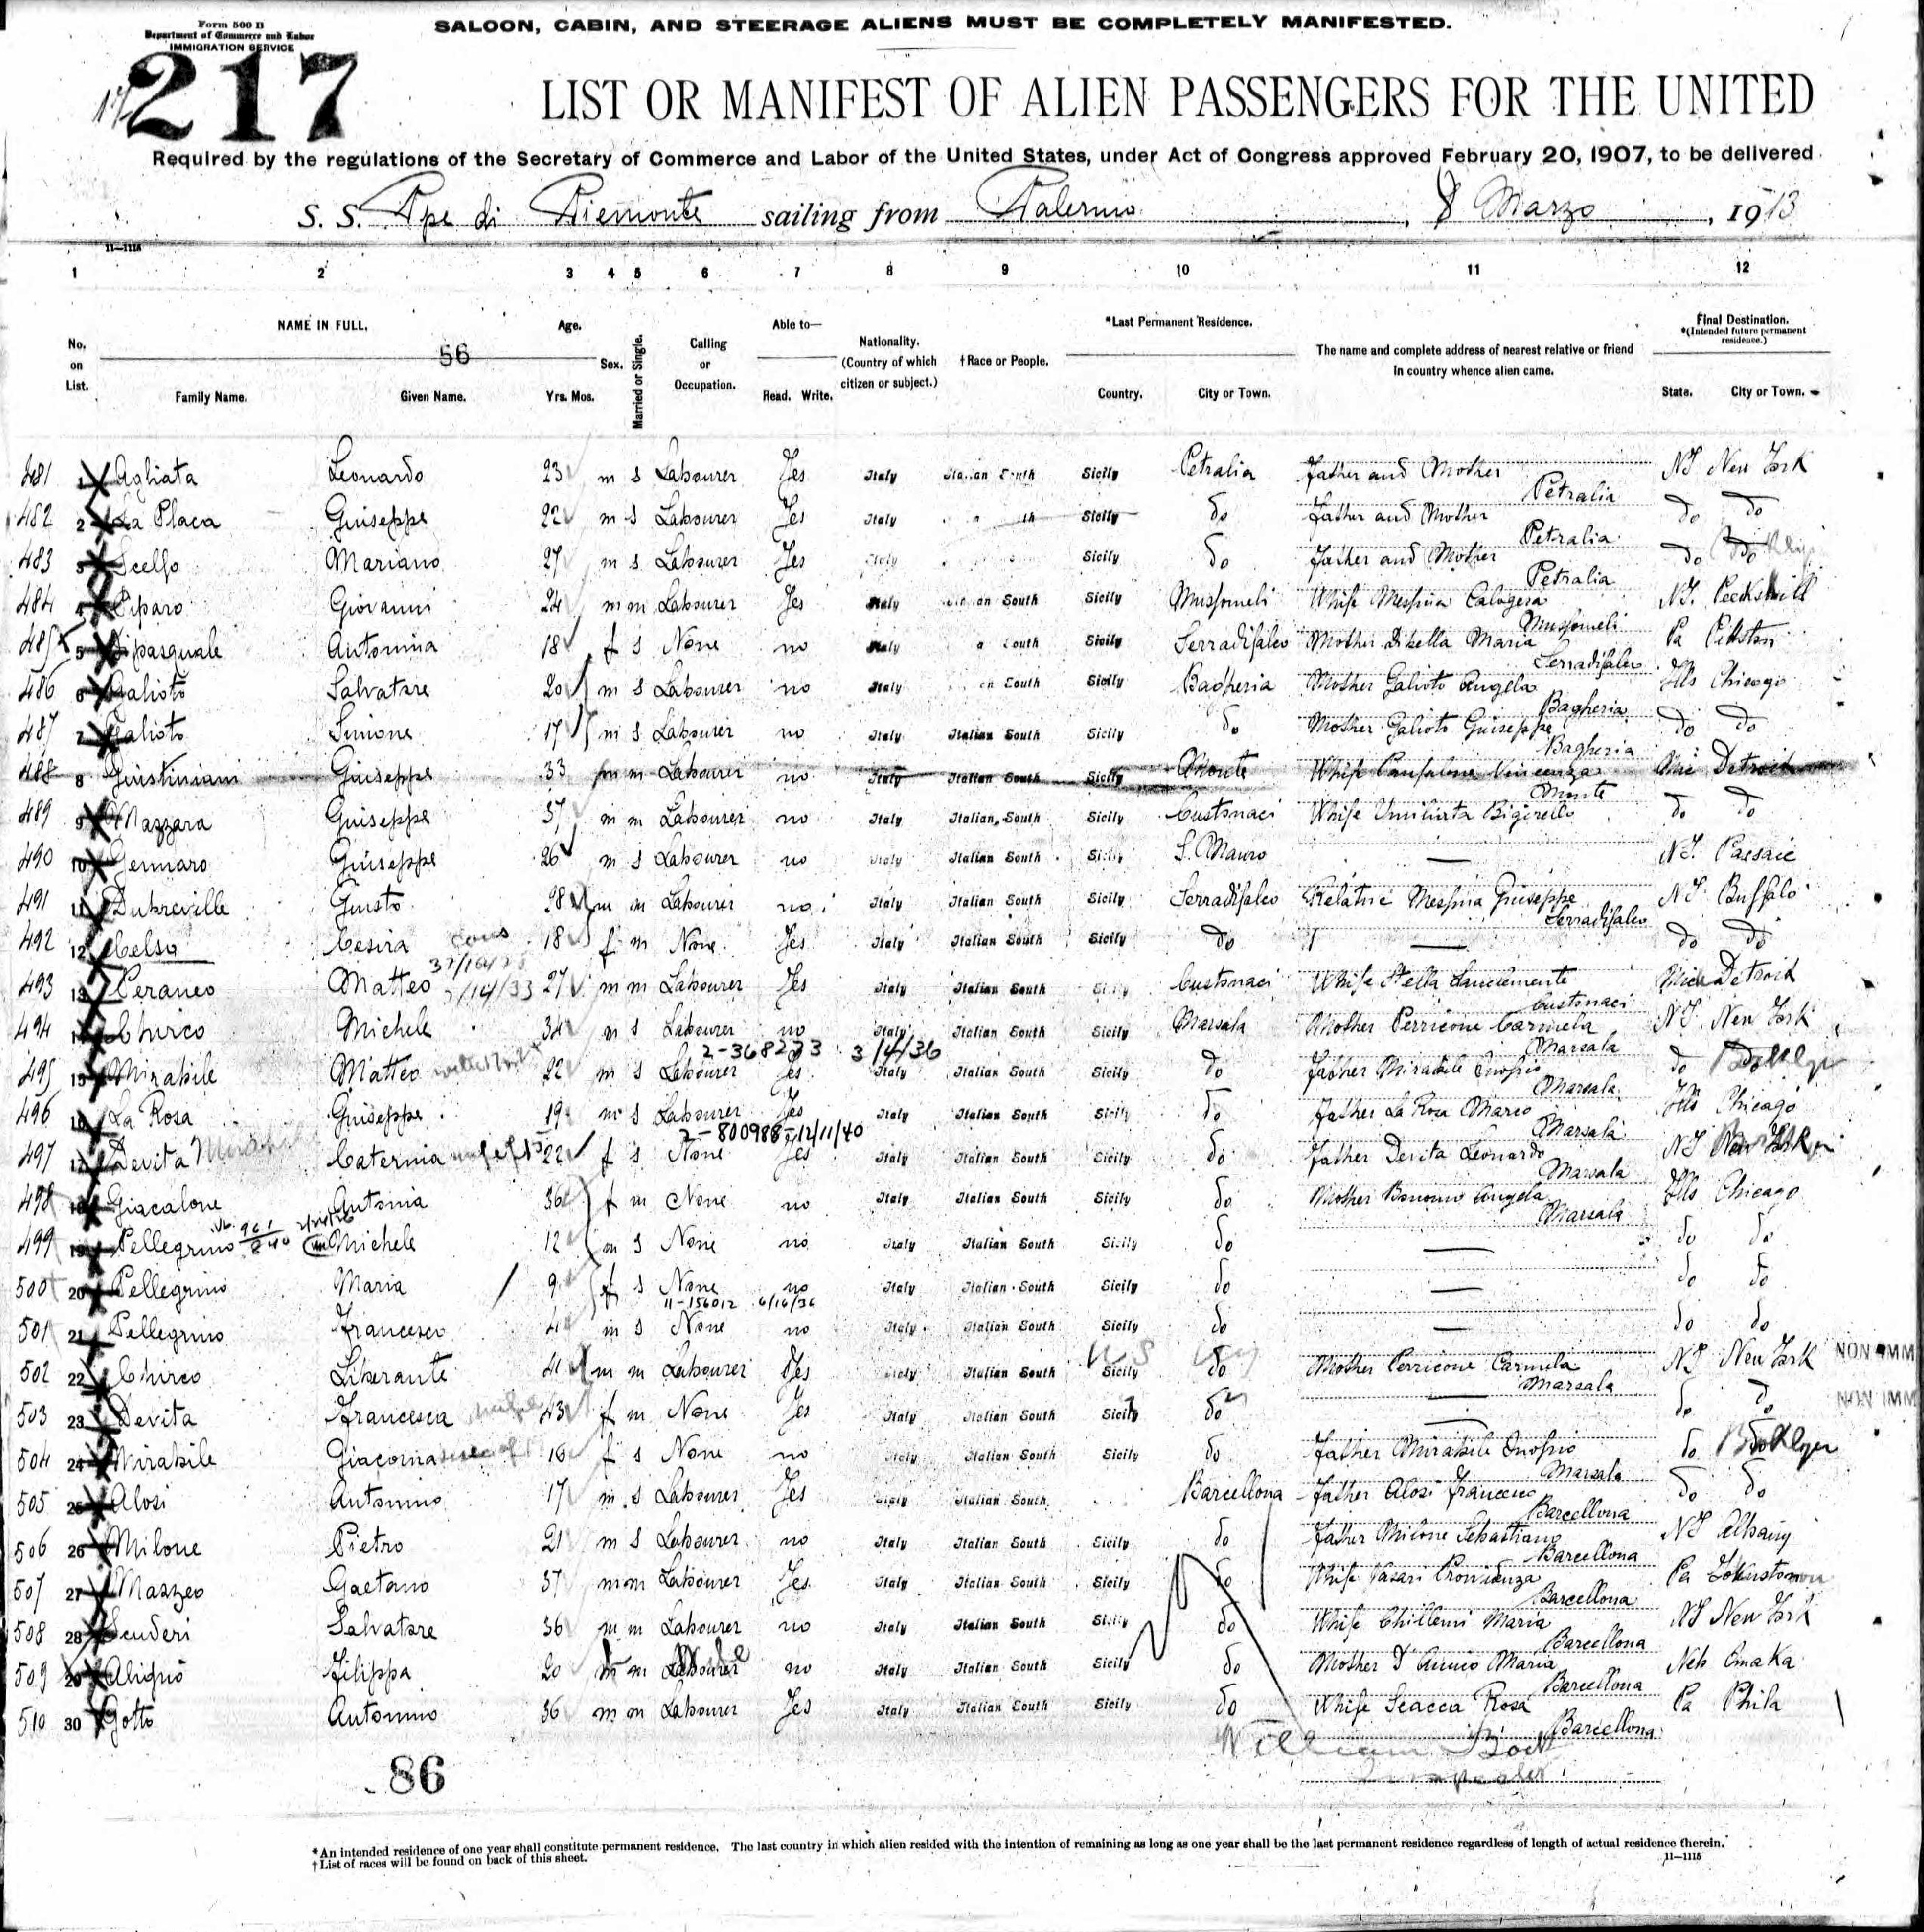 Form 500 B
Department of Commerce and Labor
IMMIGRATION SERVICE
SALOON, CABIN, AND STEERAGE ALIENS MUST BE COMPLETELY MANIFESTED.
217
LIST OR MANIFEST OF ALIEN PASSENGERS FOR THE UNITED
Required by the regulations of the Secretary of Commerce and Labor of the United States, under Act of Congress approved February 20, 1907, to be delivered
S. S. Ppe di Piemonte sailing from Palermo, 8 Marzo, 1913
11—1115
1 2 3 4 5 6 7 8 9 10 11 12
No. on List. NAME IN FULL. Family Name. Given Name. 56 Age. Yrs. Mos. Sex. Married or Single. Calling or Occupation. Able to— Read. Write. Nationality. (Country of which citizen or subject.) †Race or People. *Last Permanent Residence. Country. City or Town. The name and complete address of nearest relative or friend in country whence alien came. Final Destination. *(Intended future permanent residence.) State. City or Town.
481 1 Agliata Leonardo 23 m s Labourer Yes Italy Italian South Sicily Petralia Father and Mother Petralia NY New York
482 2 La Placa Giuseppe 22 m s Labourer Yes Italy Sicily do Father and Mother Petralia do do
483 3 Scelfo Mariano 27 m s Labourer Yes Italy Sicily do Father and Mother Petralia do
484 4 Piparo Giovanni 24 m m Labourer Yes Italy South Sicily Mussomeli Whife Messina Calogera Mussomeli NY. Peekskill
485 5 Dipasquale Antonina 18 f s None no Italy South Sicily Serradifalco Mother Maria Serradifalco Pa Pittston
486 6 Galioto Salvatore 20 m s Labourer no Italy South Sicily Bagheria Mother Galioto Angela Bagheria Ills Chicago
487 7 Galioto Simone 17 m s Labourer no Italy Italian South Sicily do Mother Galioto Giuseppe Bagheria do do
488 8 Giustiniani Giuseppe 33 m m Labourer no Italy Italian South Sicily Monte Whife Vincenza Monte Mic Detroit
489 9 Mazzara Giuseppe 37 m m Labourer no Italy Italian South Sicily Custonaci Whife do do
490 10 Gennaro Giuseppe 26 m s Labourer no Italy Italian South Sicily S. Mauro — NY. Passaic
491 11 Dubreville Giusto 28 m m Labourer no Italy Italian South Sicily Serradifalco Messina Giuseppe Serradifalco NY Buffalo
492 12 Celso Cesira 18 f m None Yes Italy Italian South Sicily do — do do
493 13 Peraneo Matteo 27 m m Labourer Yes Italy Italian South Sicily Custonaci Whife Custonaci Mich Detroit
494 14 Chirco Michele 34 m s Labourer no Italy Italian South Sicily Marsala Mother Perricone Carmela Marsala NY New York
2-368273 3/4/36
495 15 Mirabile Matteo 22 m s Labourer Yes Italy Italian South Sicily do Father Mirabile Onofrio Marsala do Brooklyn
496 16 La Rosa Giuseppe 19 m s Labourer Yes Italy Italian South Sicily do Father La Rosa Mario Marsala Ills Chicago
2-800988-12/11/40
497 17 Devita Caterina 22 f s None Yes Italy Italian South Sicily do Father Devita Leonardo Marsala NY
498 18 Giacalone Antonia 36 f m None no Italy Italian South Sicily do Mother Bonomo Angela Marsala Ills Chicago
499 19 Pellegrino Michele 12 m s None no Italy Italian South Sicily do — do do
500 20 Pellegrino Maria 9 f s None no Italy Italian South Sicily do — do do
11-156012 6/16/36
501 21 Pellegrino Francesco 4 m s None no Italy Italian South Sicily do — do do
502 22 Chirco Liberante 41 m m Labourer Yes Italy Italian South Sicily do Mother Perricone Carmela Marsala NY New York NON IMM
503 23 Devita Francesca 43 f m None Yes Italy Italian South Sicily do — do do NON IMM
504 24 Mirabile Giacoma 16 f s None no Italy Italian South Sicily do Father Mirabile Onofrio Marsala do Brooklyn
505 25 Alosi Antonino 17 m s Labourer Yes Italy Italian South Barcellona Father Alosi Francesco Barcellona do do
506 26 Milone Pietro 21 m s Labourer no Italy Italian South Sicily do Father Milone Sebastiano Barcellona NY Albany
507 27 Mazzeo Gaetano 37 m m Labourer Yes Italy Italian South Sicily do Whife Barcellona Pa Johnstown
508 28 Scuderi Salvatore 36 m m Labourer no Italy Italian South Sicily do Whife Chillemi Maria Barcellona NY New York
509 29 Aliquò Filippa 20 m Wife no Italy Italian South Sicily do Mother D'Amico Maria Barcellona Neb Omaka
510 30 Gotto Antonino 36 m m Labourer Yes Italy Italian South Sicily do Whife Sciacca Rosa Barcellona Pa Phila
86
*An intended residence of one year shall constitute permanent residence. The last country in which alien resided with the intention of remaining as long as one year shall be the last permanent residence regardless of length of actual residence therein.
†List of races will be found on back of this sheet.
11—1115